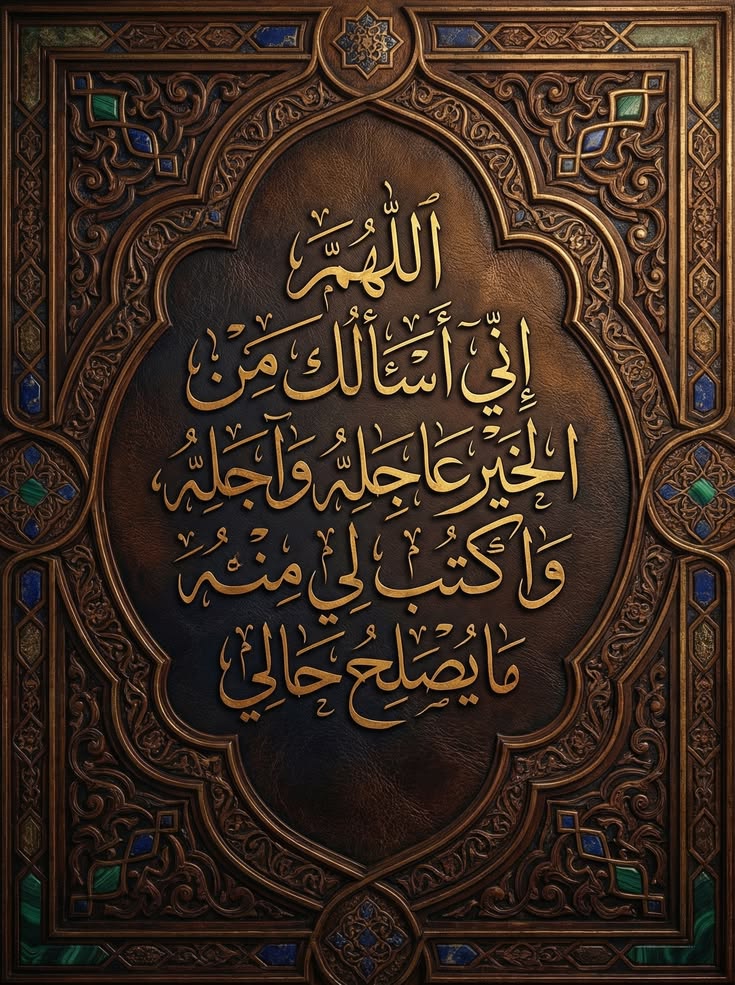 اللّٰهُمَّ
إِنِّي أَسْأَلُكَ مِنَ
الْخَيْرِ عَاجِلِهِ وَآجِلِهِ
وَاكْتُبْ لِي مِنْهُ
مَا يُصْلِحُ حَالِي